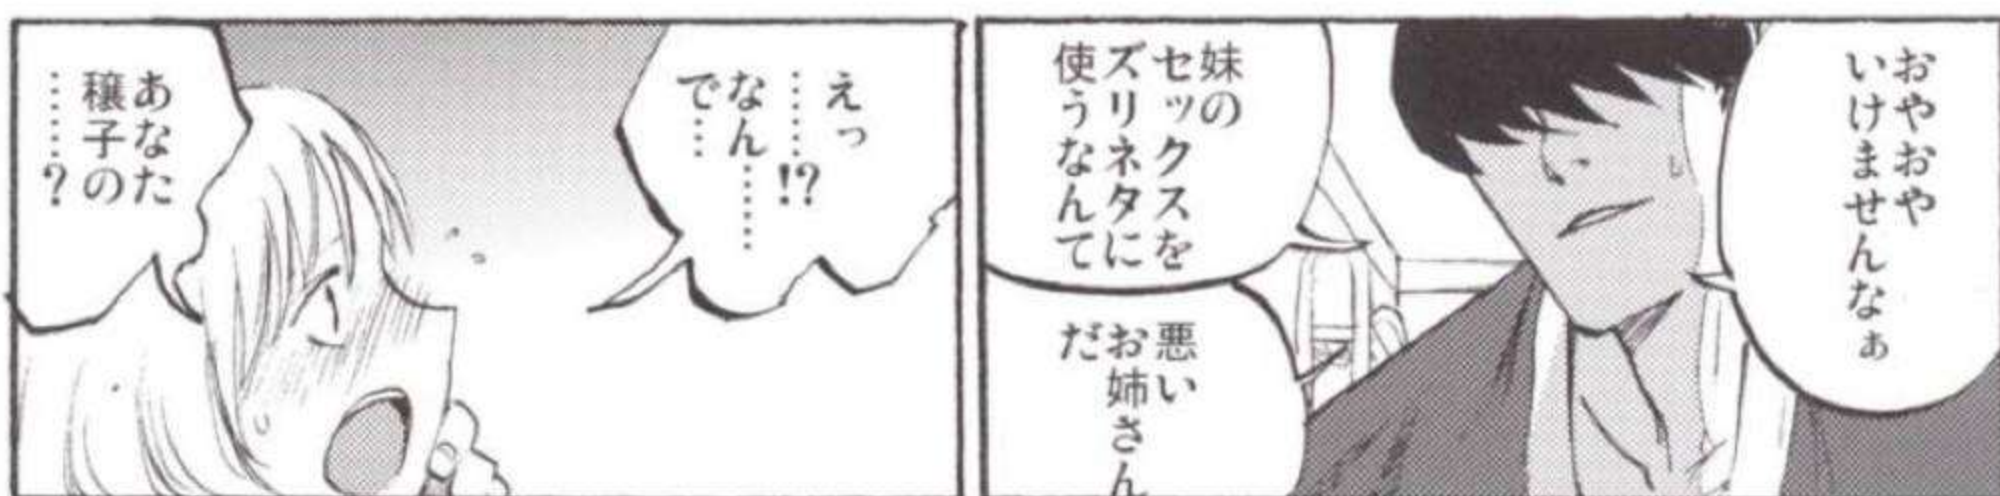 おやおや
いけませんなぁ
妹の
セックスを
ズリネタに
使うなんて
悪い
お姉さん
だ
えっ
………!?
なん………
で…
あなた
穣子の
………?